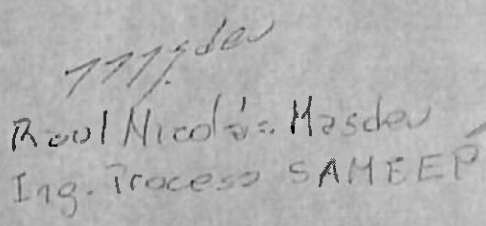 Raul Nicolás Masdeu
Ing. Proceso SAMEEP